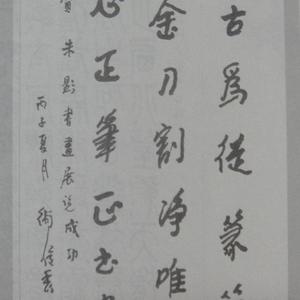 古為從篆
金刀割净唯
心正筆正書
賀朱彭書畫展覽成功
丙子夏月